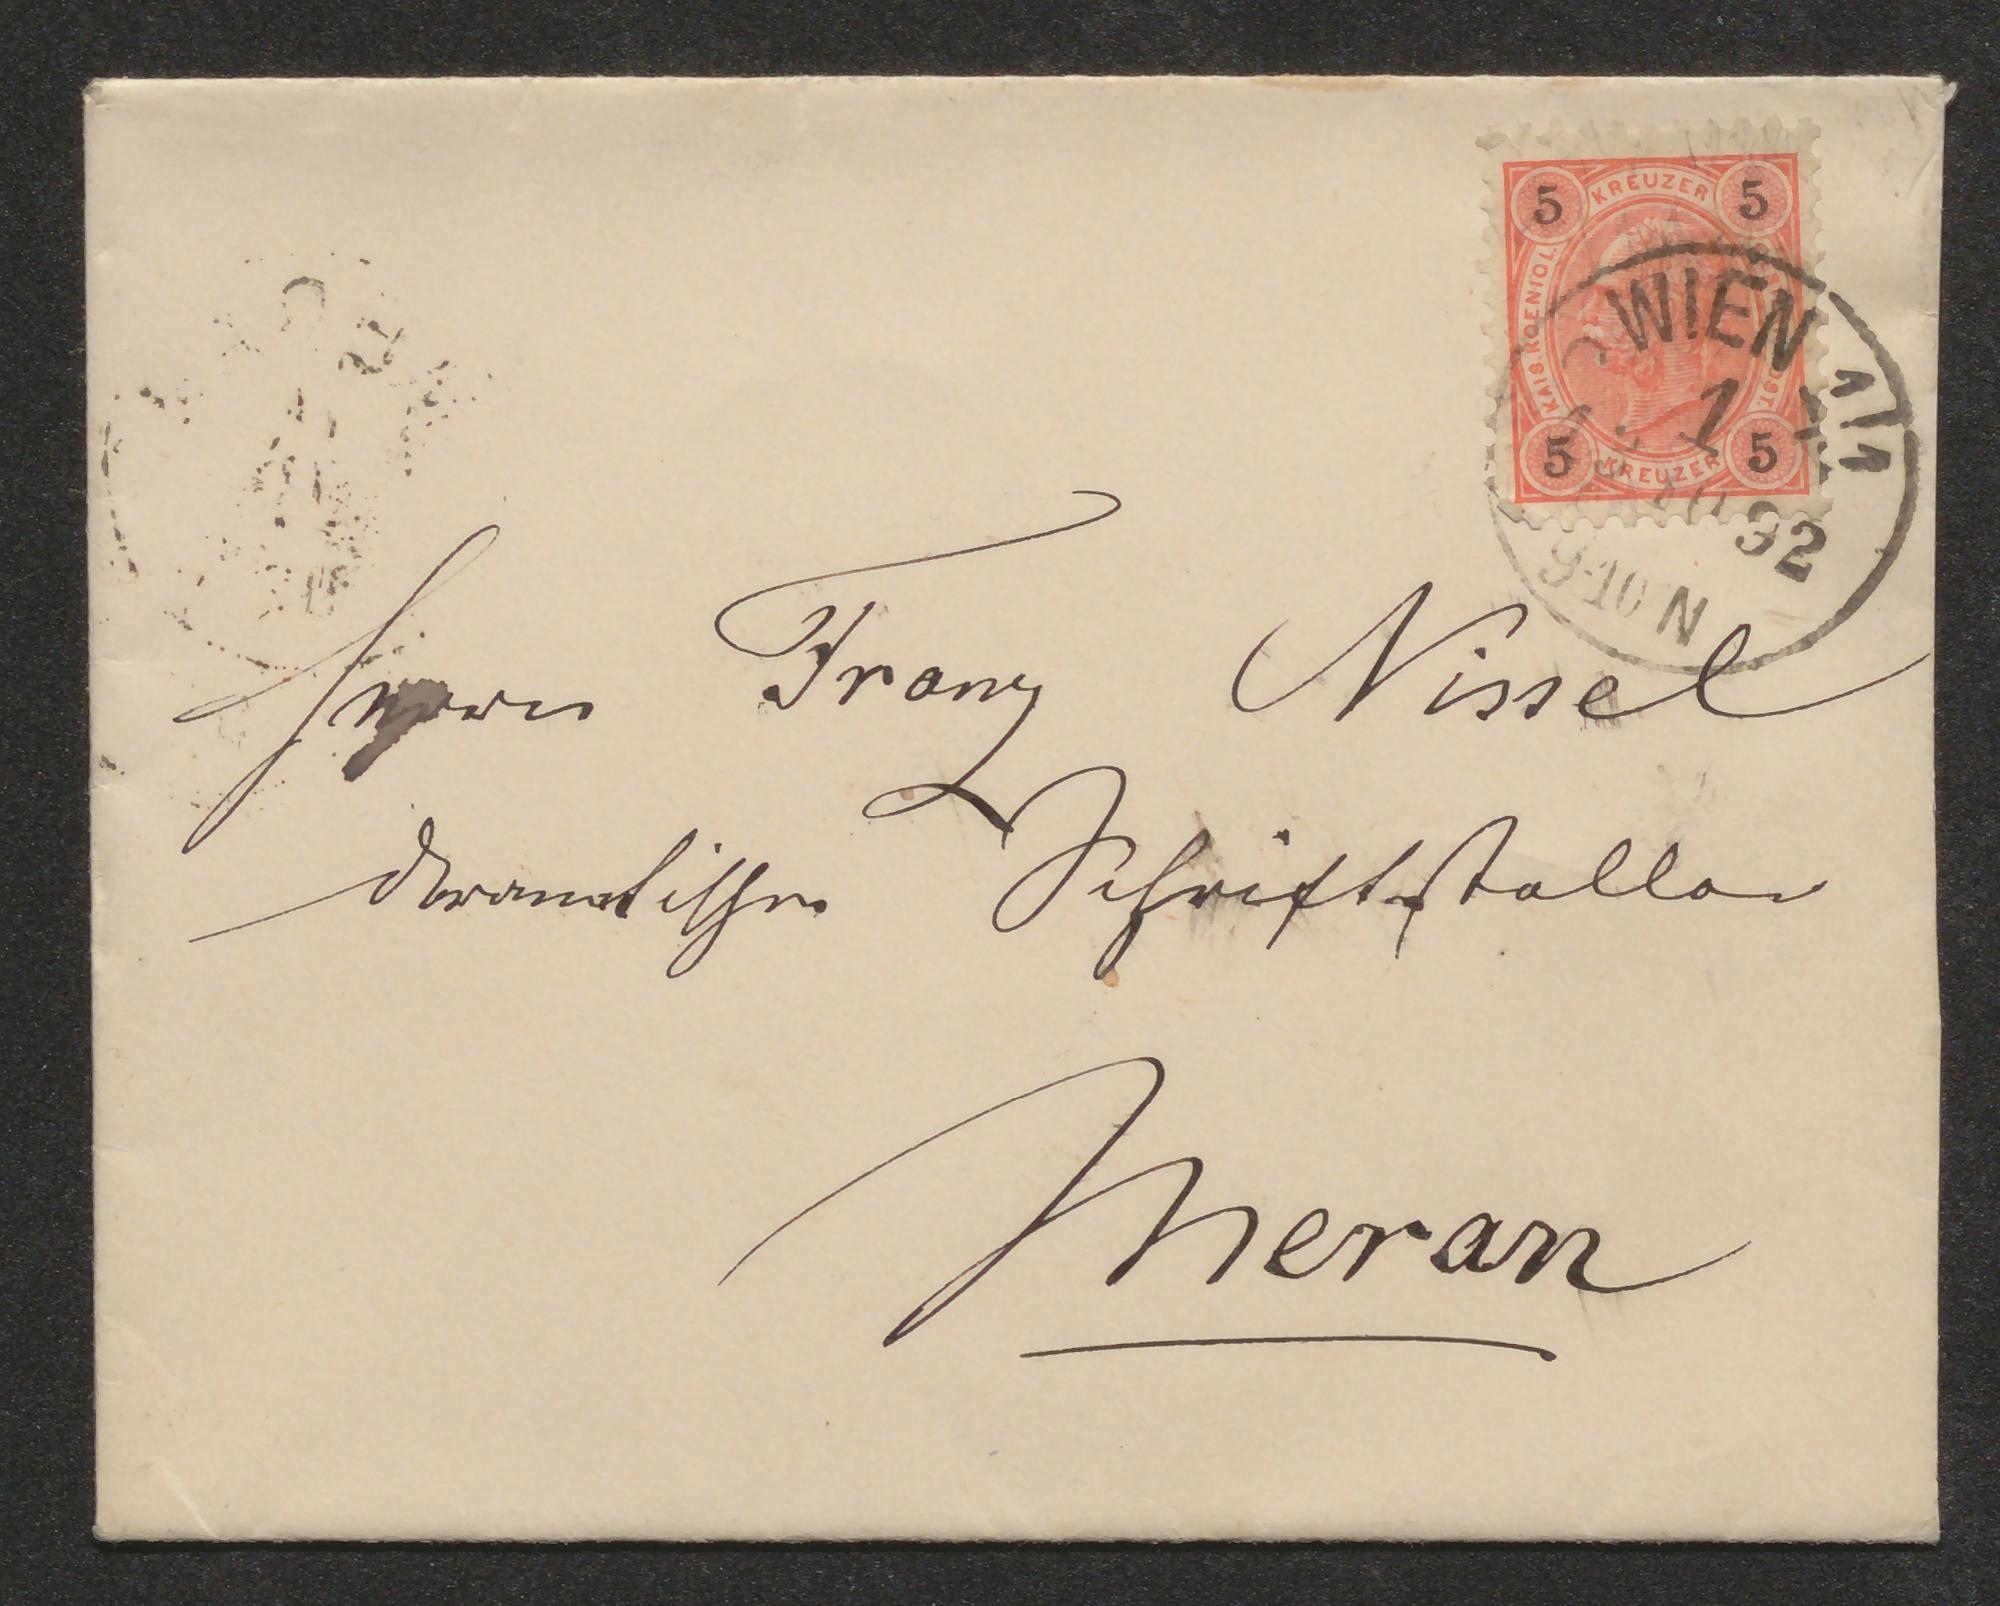 5 KREUZER 5
KAIS. KOENIGL.
5 KREUZER 5
WIEN 1/1
1
92
9-10 N
Herrn Franz Nissel
dramatischer Schriftsteller
Meran